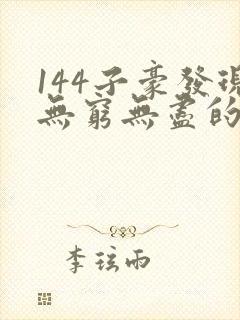 144子豪發現
無窮無盡的
李玹雨